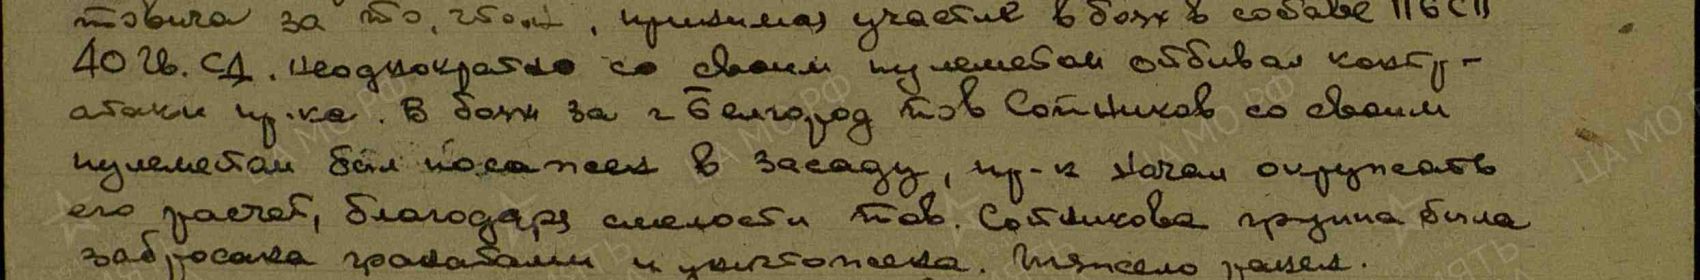 товича за то, что , принимая участие в боях в составе 116 СП
40 Гв. СД. неоднократно со своим пулеметом отбивал контр-
атаки пр-ка. В боях за г Белгород тов Сотников со своим
пулеметом был посажен в засаду, пр-к начал окружать
его расчет, благодаря смелости тов. Сотникова группа была
забросана гранатами и уничтожена. Тяжело ранен.